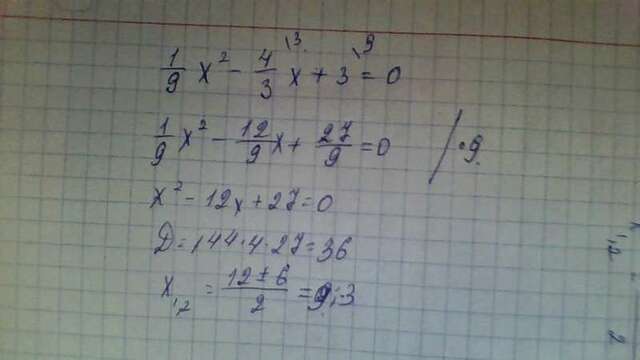 1/9 x² - 4/3 \3 x + 3 \9 = 0
1/9 x² - 12/9 x + 27/9 = 0 / ·9
x² - 12x + 27 = 0
D = 144·4·27 = 36
x₁,₂ = (12 ± 6)/2 = 9; 3
1,2 =
2